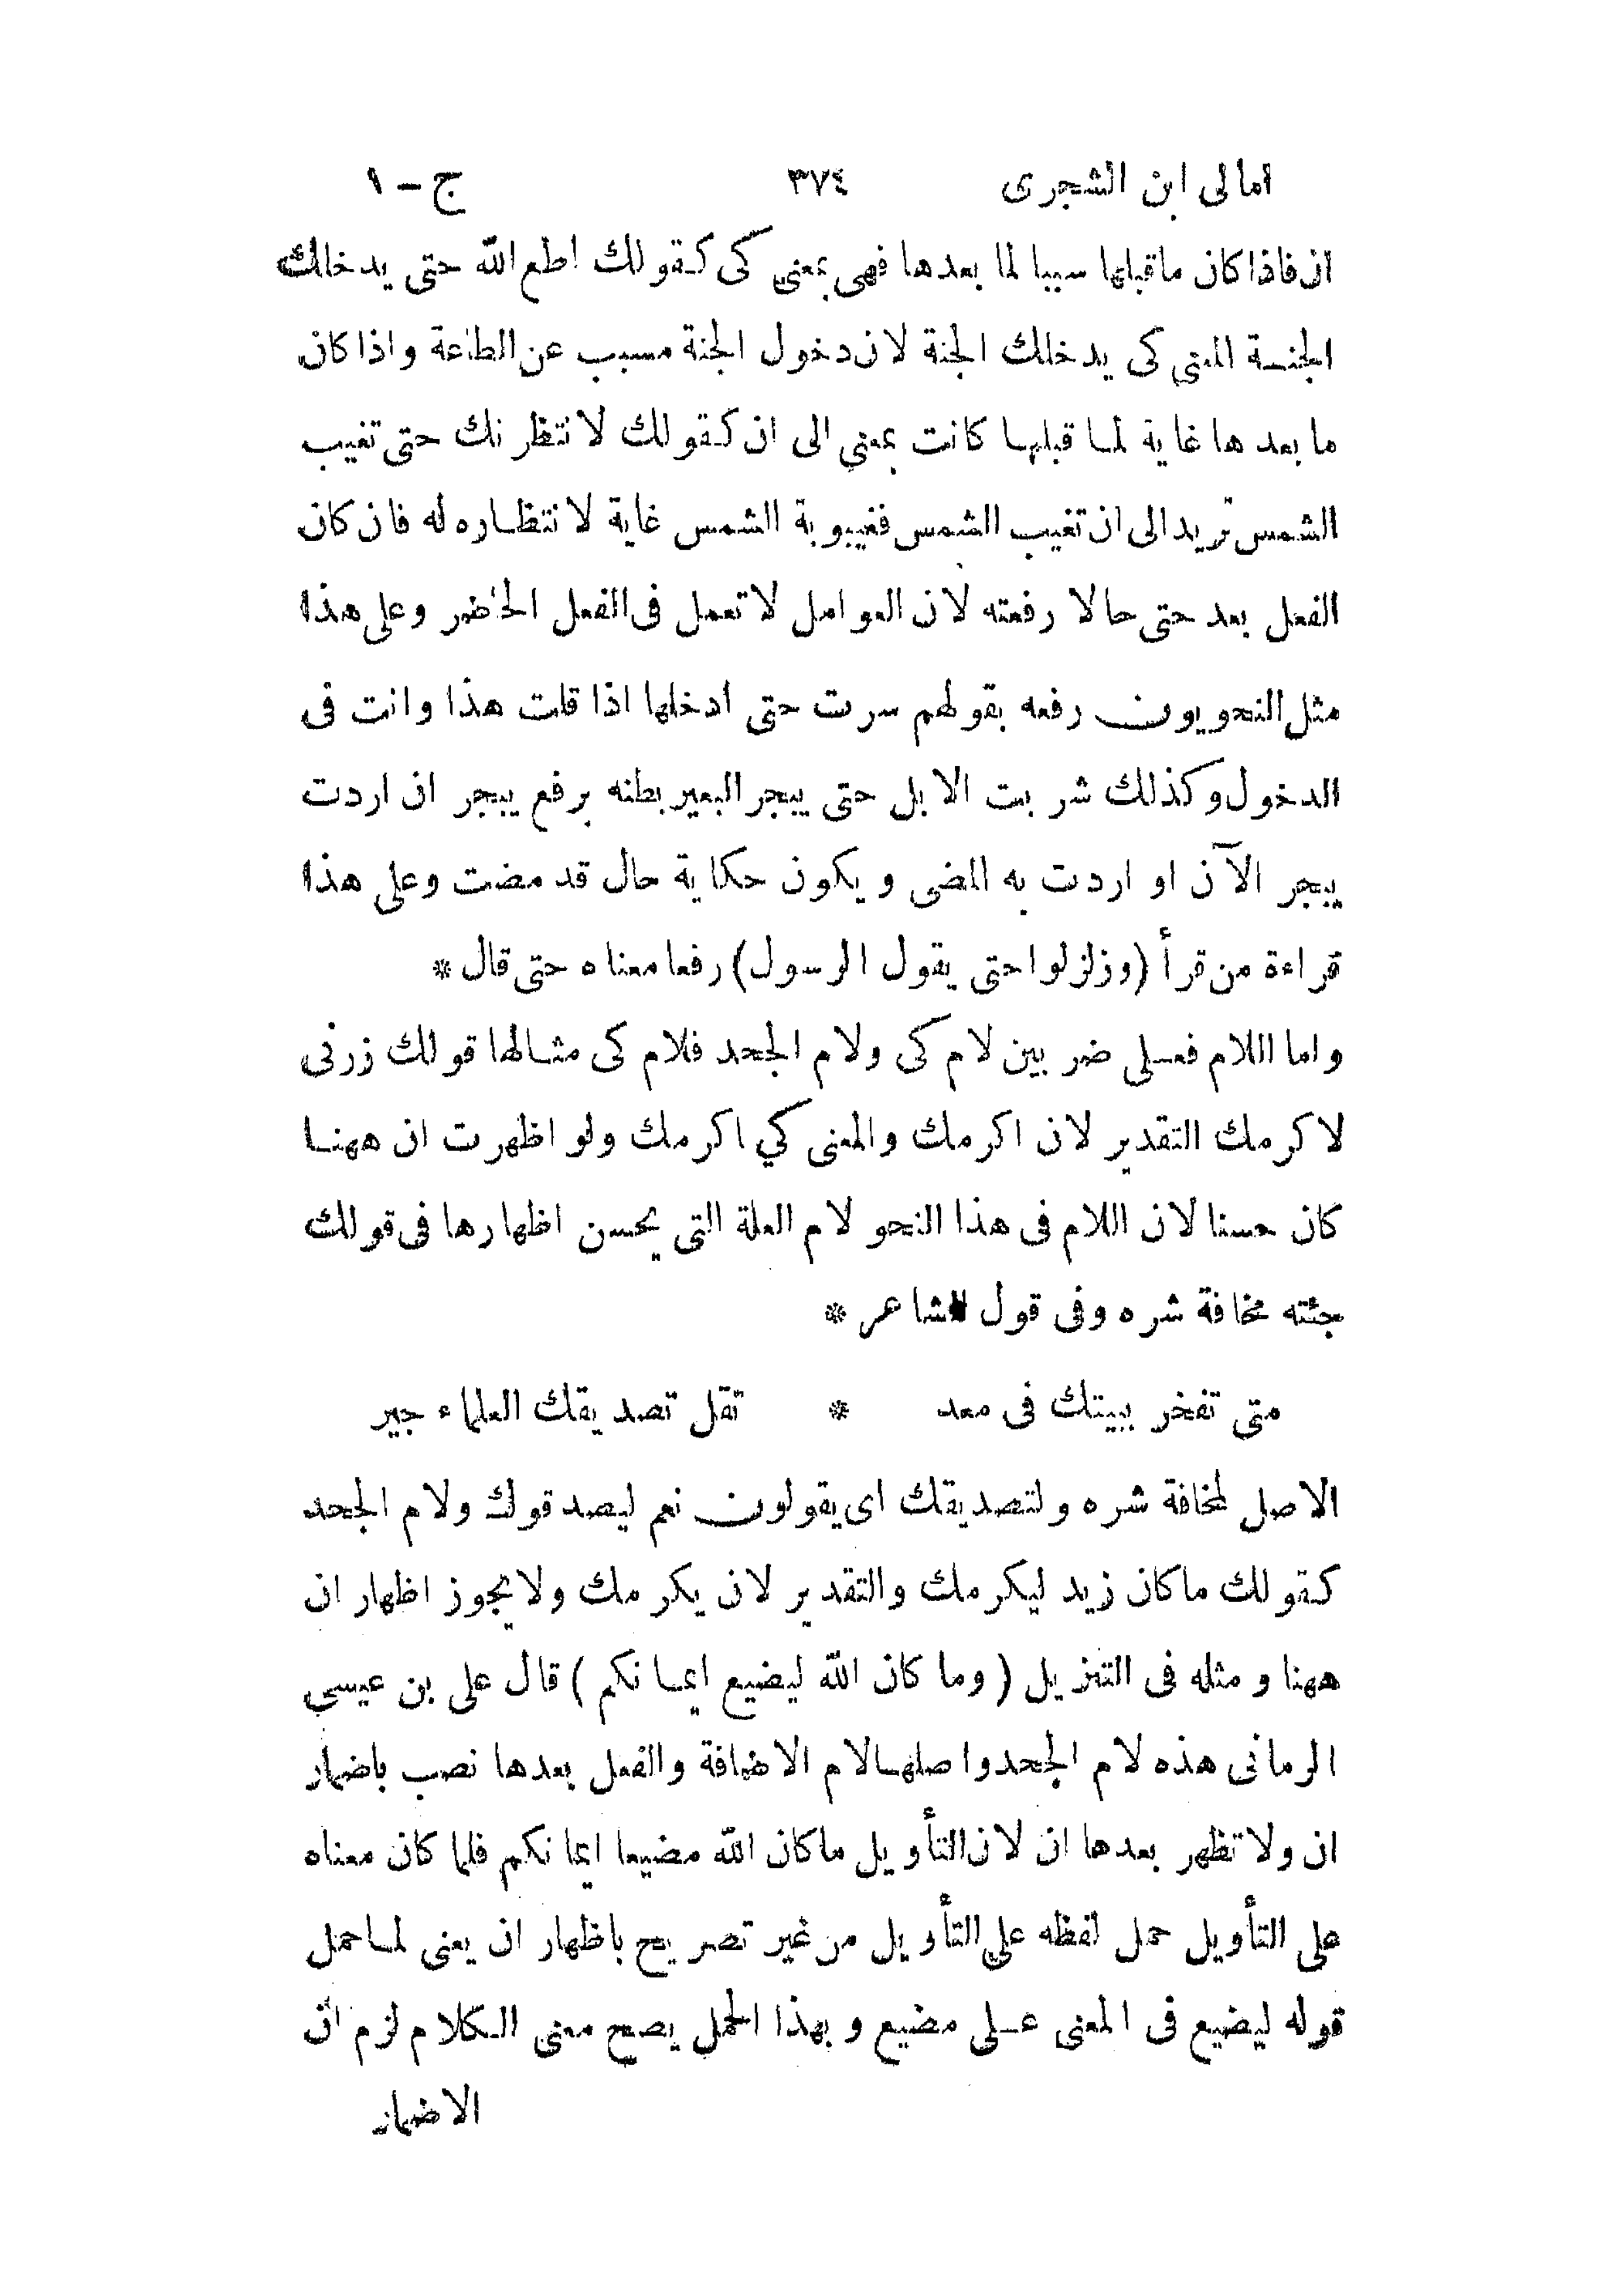 امالى ابن الشجرى ٣٧٤ ج – ١
ان فاذا كان ماقبلها سببا لما بعدها فهى بمعنى كى كقولك اطع الله حتى يدخلك
الجنة المعنى كى يدخلك الجنة لان دخول الجنة مسبب عن الطاعة واذا كان
ما بعدها غاية لما قبلها كانت بمعنى الى ان كقولك لانتظرنك حتى تغيب
الشمس تريد الى ان تغيب الشمس فغيبوبة الشمس غاية لانتظاره له فان كان
الفعل بعد حتى حالا رفعته لان العوامل لا تعمل فى الفعل الحاضر وعلى هذا
مثل النحويون رفعه بقولهم سرت حتى ادخلها اذا قلت هذا وانت فى
الدخول وكذلك شربت الابل حتى يبجر البعير بطنه برفع يبجر ان اردت
يبجر الآن او اردت به المضى ويكون حكاية حال قد مضت وعلى هذا
قراءة من قرأ (وزلزلوا حتى يقول الرسول) رفعا معناه حتى قال *
واما اللام فعلى ضربين لام كى ولام الجحد فلام كى مثالها قولك زرنى
لاكرمك التقدير لان اكرمك والمعنى كي اكرمك ولو اظهرت ان ههنا
كان حسنا لان اللام فى هذا النحو لام العلة التى يحسن اظهارها فى قولك
جئته مخافة شره وفى قول الشاعر *
متى تفخر ببيتك فى معد * تقل تصديقك العلماء جير
الاصل لمخافة شره ولتصديقك اى يقولون نعم ليصدقوك ولام الجحد
كقولك ماكان زيد ليكرمك والتقدير لان يكرمك ولا يجوز اظهار ان
ههنا ومثله فى التنزيل ( وما كان الله ليضيع ايمانكم ) قال على بن عيسى
الرمانى هذه لام الجحد واصلها لام الاضافة والفعل بعدها نصب باضمار
ان ولا تظهر بعدها ان لان التأويل ماكان الله مضيعا ايمانكم فلما كان معناه
على التأويل حمل لفظه على التأويل من غير تصريح باظهار ان يعنى لما حمل
قوله ليضيع فى المعنى على مضيع وبهذا الحمل يصح معنى الكلام لزم ان
الاضمار